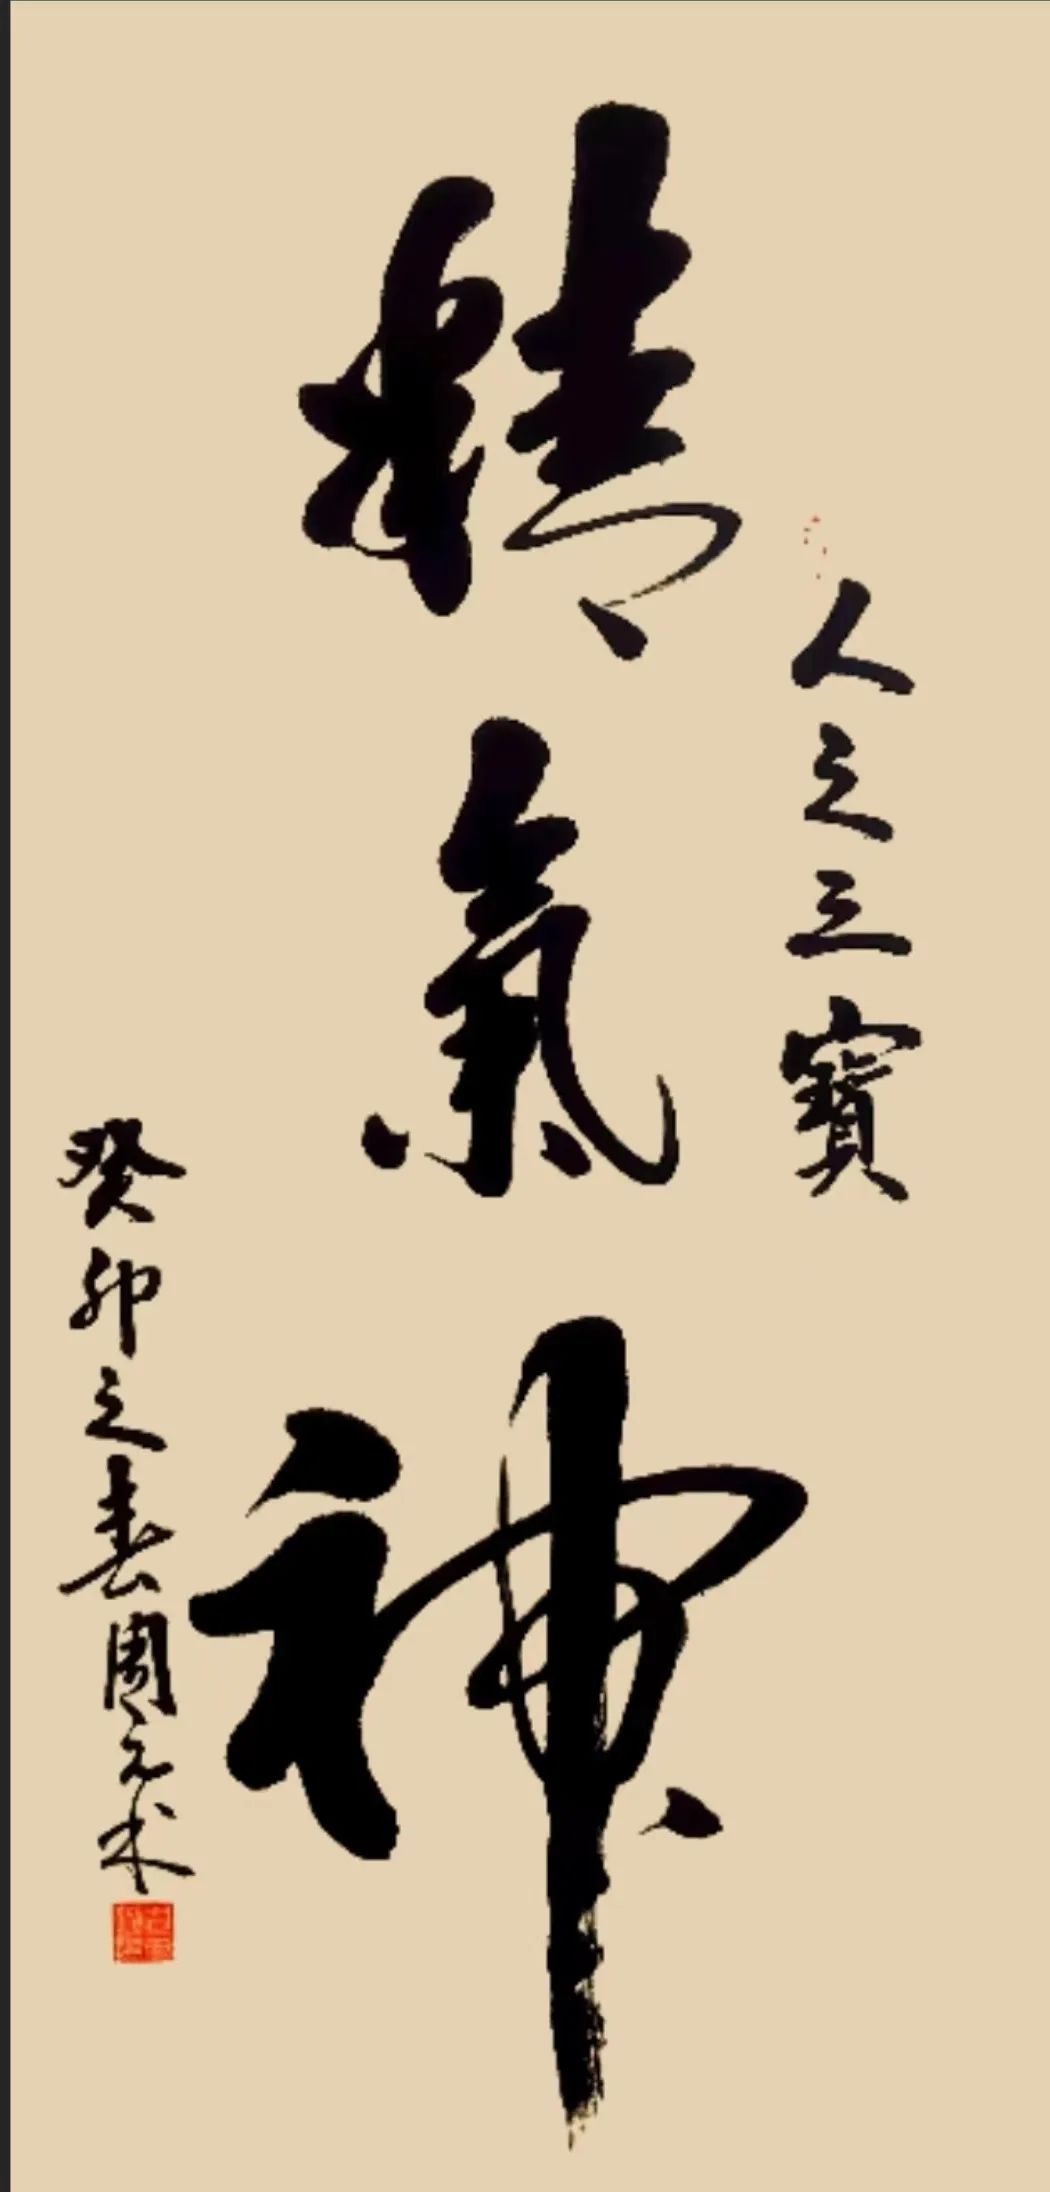 人之三寶
精氣神
癸卯之春周元术